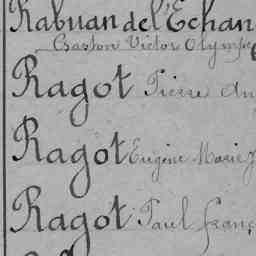 Rabuan de l'Echan
Gaston Victor Olympe
Ragot Pierre An
Ragot Eugène Marie J
Ragot Paul Franç